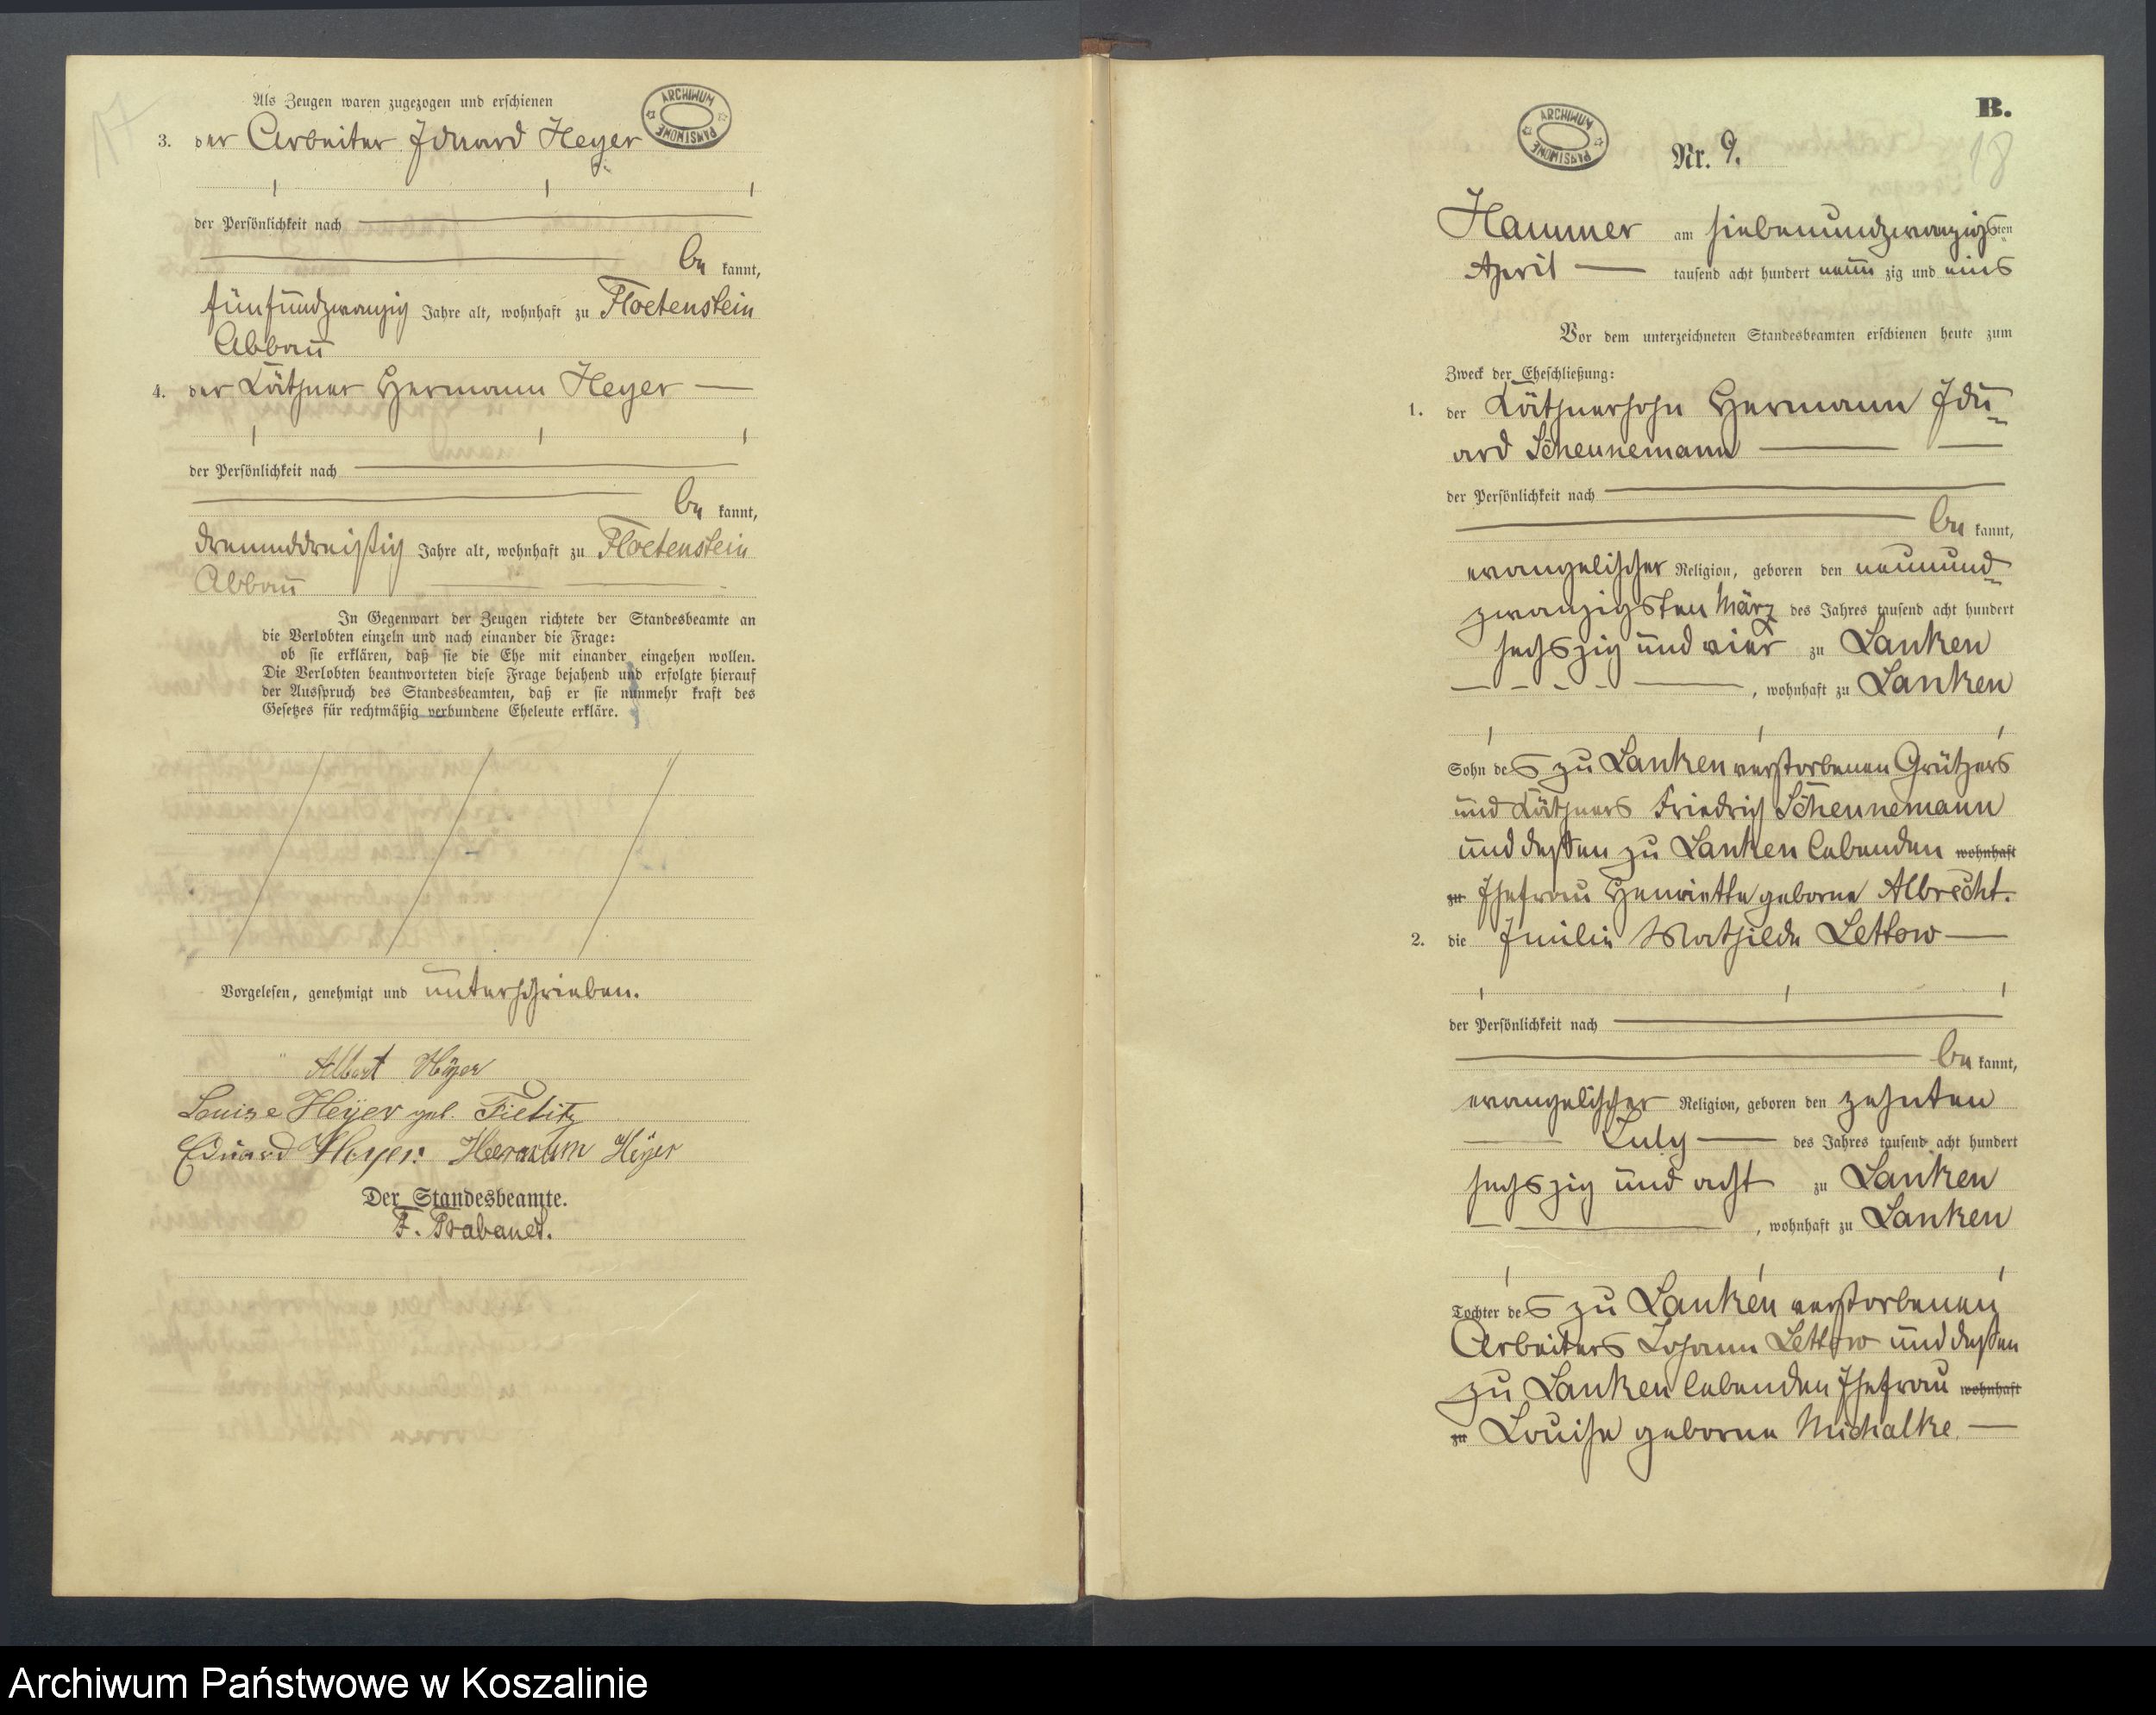 17
Als Zeugen waren zugezogen und erschienen
ARCHIWUM PAŃSTWOWE
3. der Arbeiter Eduard Heyer
der Persönlichkeit nach
be kannt,
fünfundzwanzig Jahre alt, wohnhaft zu Floetenstein
Abbau
4. der Käthner Hermann Heyer
der Persönlichkeit nach
be kannt,
dreiunddreißig Jahre alt, wohnhaft zu Floetenstein
Abbau
In Gegenwart der Zeugen richtete der Standesbeamte an
die Verlobten einzeln und nach einander die Frage:
ob sie erklären, daß sie die Ehe mit einander eingehen wollen.
Die Verlobten beantworteten diese Frage bejahend und erfolgte hierauf
der Ausspruch des Standesbeamten, daß er sie nunmehr kraft des
Gesetzes für rechtmäßig verbundene Eheleute erkläre.
Vorgelesen, genehmigt und unterschrieben.
Albert Heyer
Louise Heyer geb.
Eduard Heyer. Hermann Heyer
Der Standesbeamte.
F.
B.
18
ARCHIWUM PAŃSTWOWE
Nr. 9.
Hammer am siebenundzwanzigsten
April tausend acht hundert neun zig und eins
Vor dem unterzeichneten Standesbeamten erschienen heute zum
Zweck der Eheschließung:
1. der Käthnersohn Hermann Edu-
ard Scheunemann
der Persönlichkeit nach
be kannt,
evangelischer Religion, geboren den neunund-
zwanzigsten März des Jahres tausend acht hundert
sechszig und vier zu Lanken
, wohnhaft zu Lanken
Sohn des zu Lanken verstorbenen Grützers
und Käthners Friedrich Scheunemann
und dessen zu Lanken lebenden wohnhaft
zu Ehefrau Henriette geborne Albrecht.
2. die Emilie Mathilde Lettow
der Persönlichkeit nach
be kannt,
evangelischer Religion, geboren den zehnten
July des Jahres tausend acht hundert
sechszig und acht zu Lanken
, wohnhaft zu Lanken
Tochter des zu Lanken verstorbenen
Arbeiters Johann Lettow und dessen
zu Lanken lebenden Ehefrau wohnhaft
zu Louise geborne Michalke
Archiwum Państwowe w Koszalinie